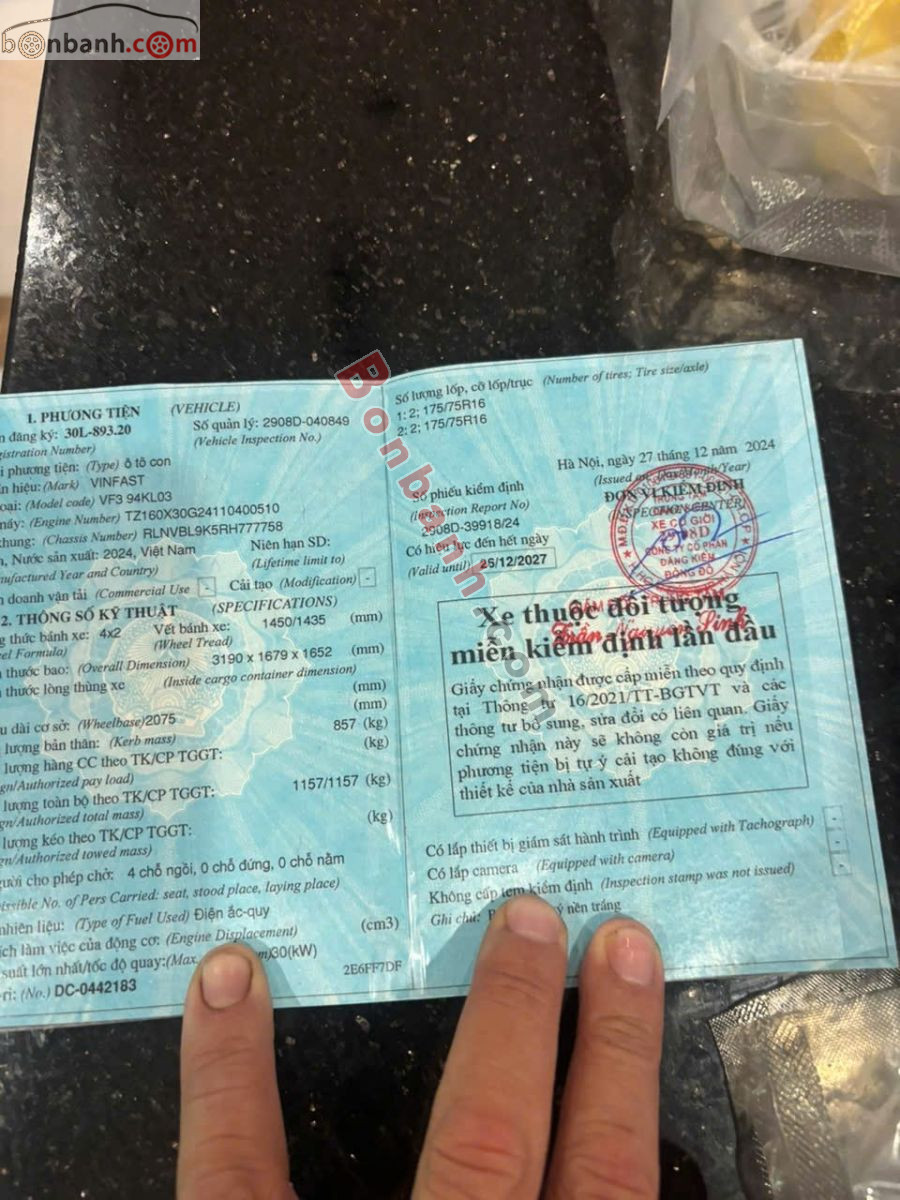 bonbanh.com
1. PHƯƠNG TIỆN (VEHICLE)
đăng ký: 30L-893.20 Số quản lý: 2908D-040849
(Vehicle Inspection No.)
phương tiện: (Type) ô tô con
hiệu: (Mark) VINFAST
oại: (Model code) VF3 94KL03
máy: (Engine Number) TZ160X30G24110400510
khung: (Chassis Number) RLNVBL9K5RH777758
, Nước sản xuất: 2024, Việt Nam Niên hạn SD:
nufactured Year and Country) (Lifetime limit to)
doanh vận tải (Commercial Use - Cải tạo (Modification) -
2. THÔNG SỐ KỸ THUẬT (SPECIFICATIONS)
thức bánh xe: 4x2 Vết bánh xe: 1450/1435 (mm)
el Formula) (Wheel Tread)
thước bao: (Overall Dimension) 3190 x 1679 x 1652 (mm)
thước lòng thùng xe (Inside cargo container dimension)
(mm)
u dài cơ sở: (Wheelbase)2075 (mm)
lượng bản thân: (Kerb mass) 857 (kg)
lượng hàng CC theo TK/CP TGGT: (kg)
gn/Authorized pay load)
lượng toàn bộ theo TK/CP TGGT: 1157/1157 (kg)
gn/Authorized total mass)
lượng kéo theo TK/CP TGGT: (kg)
gn/Authorized towed mass)
gười cho phép chở: 4 chỗ ngồi, 0 chỗ đứng, 0 chỗ nằm
issible No. of Pers Carried: seat, stood place, laying place)
nhiên liệu: (Type of Fuel Used) Điện ắc-quy
ích làm việc của động cơ: (Engine Displacement) (cm3)
suất lớn nhất/tốc độ quay:(Max. m)30(kW)
ri: (No.) DC-0442183 2E6FF7DF
Số lượng lốp, cỡ lốp/trục (Number of tires; Tire size/axle)
1: 2; 175/75R16
2: 2; 175/75R16
Hà Nội, ngày 27 tháng 12 năm 2024
(Issued on: Day/Month/Year)
Số phiếu kiểm định ĐƠN VỊ KIỂM ĐỊNH
(Inspection Report No) (INSPECTION CENTER)
2908D-39918/24
Có hiệu lực đến hết ngày
(Valid until) 26/12/2027
XE CƠ GIỚI
2908D
CÔNG TY CỔ PHẦN
ĐĂNG KIỂM
ĐÔNG ĐÔ
Xe thuộc đối tượng
miễn kiểm định lần đầu
Giấy chứng nhận được cấp miễn theo quy định
tại Thông tư 16/2021/TT-BGTVT và các
thông tư bổ sung, sửa đổi có liên quan. Giấy
chứng nhận này sẽ không còn giá trị nếu
phương tiện bị tự ý cải tạo không đúng với
thiết kế của nhà sản xuất
Có lắp thiết bị giám sát hành trình (Equipped with Tachograph) -
Có lắp camera (Equipped with camera) -
Không cấp tem kiểm định (Inspection stamp was not issued) -
Ghi chú: nền trắng
Bonbanh.com